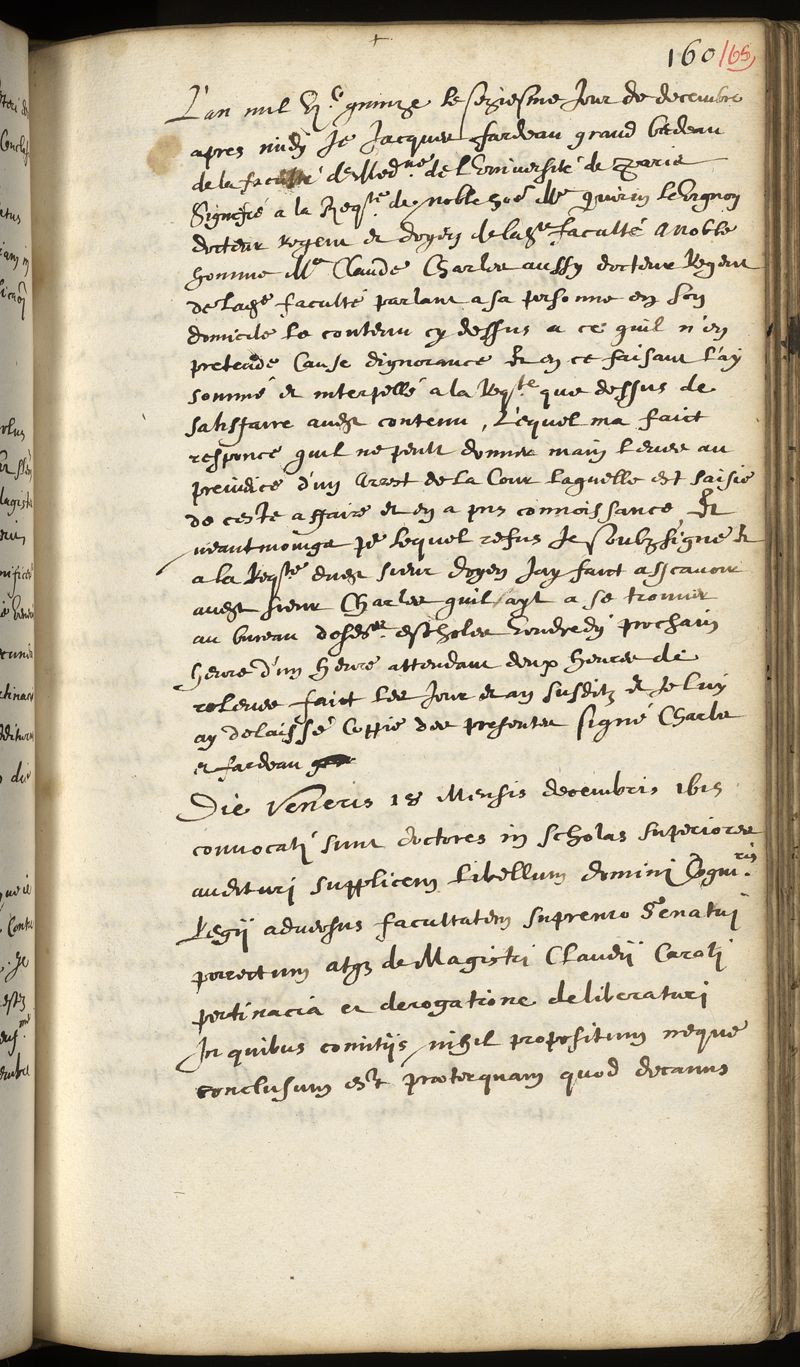 160 165
L'an mil vj.c quinze le seziesme Jour de decembre
apres midy Je Jacques fardeau grand bedeau
de la faculté de Med.ne de l'Université de Paris
Signifié a la Req.te de noble ho.e M.e Quirin leVignon
docteur regent et doyen de lad.te faculté a Noble
homme M.e Claude Charles aussy docteur Regent
de lad.e faculté parlant a sa personne en son
domicile le contenu cy dessus a ce quil n'en
pretende Cause dignorance Et en ce faisant l'ay
sommé et interpellé a la Req.te que dessus de
satisfaire aud. contenu, Lequel ma faict
responce quil ne peult donner main levee au
preiudice d'un Arrest de la Cour laquelle est saisie
de ceste affaire et en a pris connoissance Et
neantmoings p lequel refus Je soubzsigné et
a la Req.te dud. sieur doyen Jay faict assçavoir
aud. sieur Charles quil ayt a se trouver
au bureau desd. escholes Vendredy prochain
heure d'un heure attendant deux heures de
relevee faict les Jour et an susditz et Je luy
ay delaissé Coppie des presentes signé Charles
et fardeau
Die Veneris 18 Mensis decembris 1615
convocati sunt doctores in scholas superiores
audituri supplicem libellum domini Cogni.ris
Regij adversus facultatem supremo Senatui
porrectum atq; de Magistri Claudij Caroli
pertinacia et derogatione deliberaturi
In quibus comitijs nihil propositum neque
conclusum est præterquam quod decanus